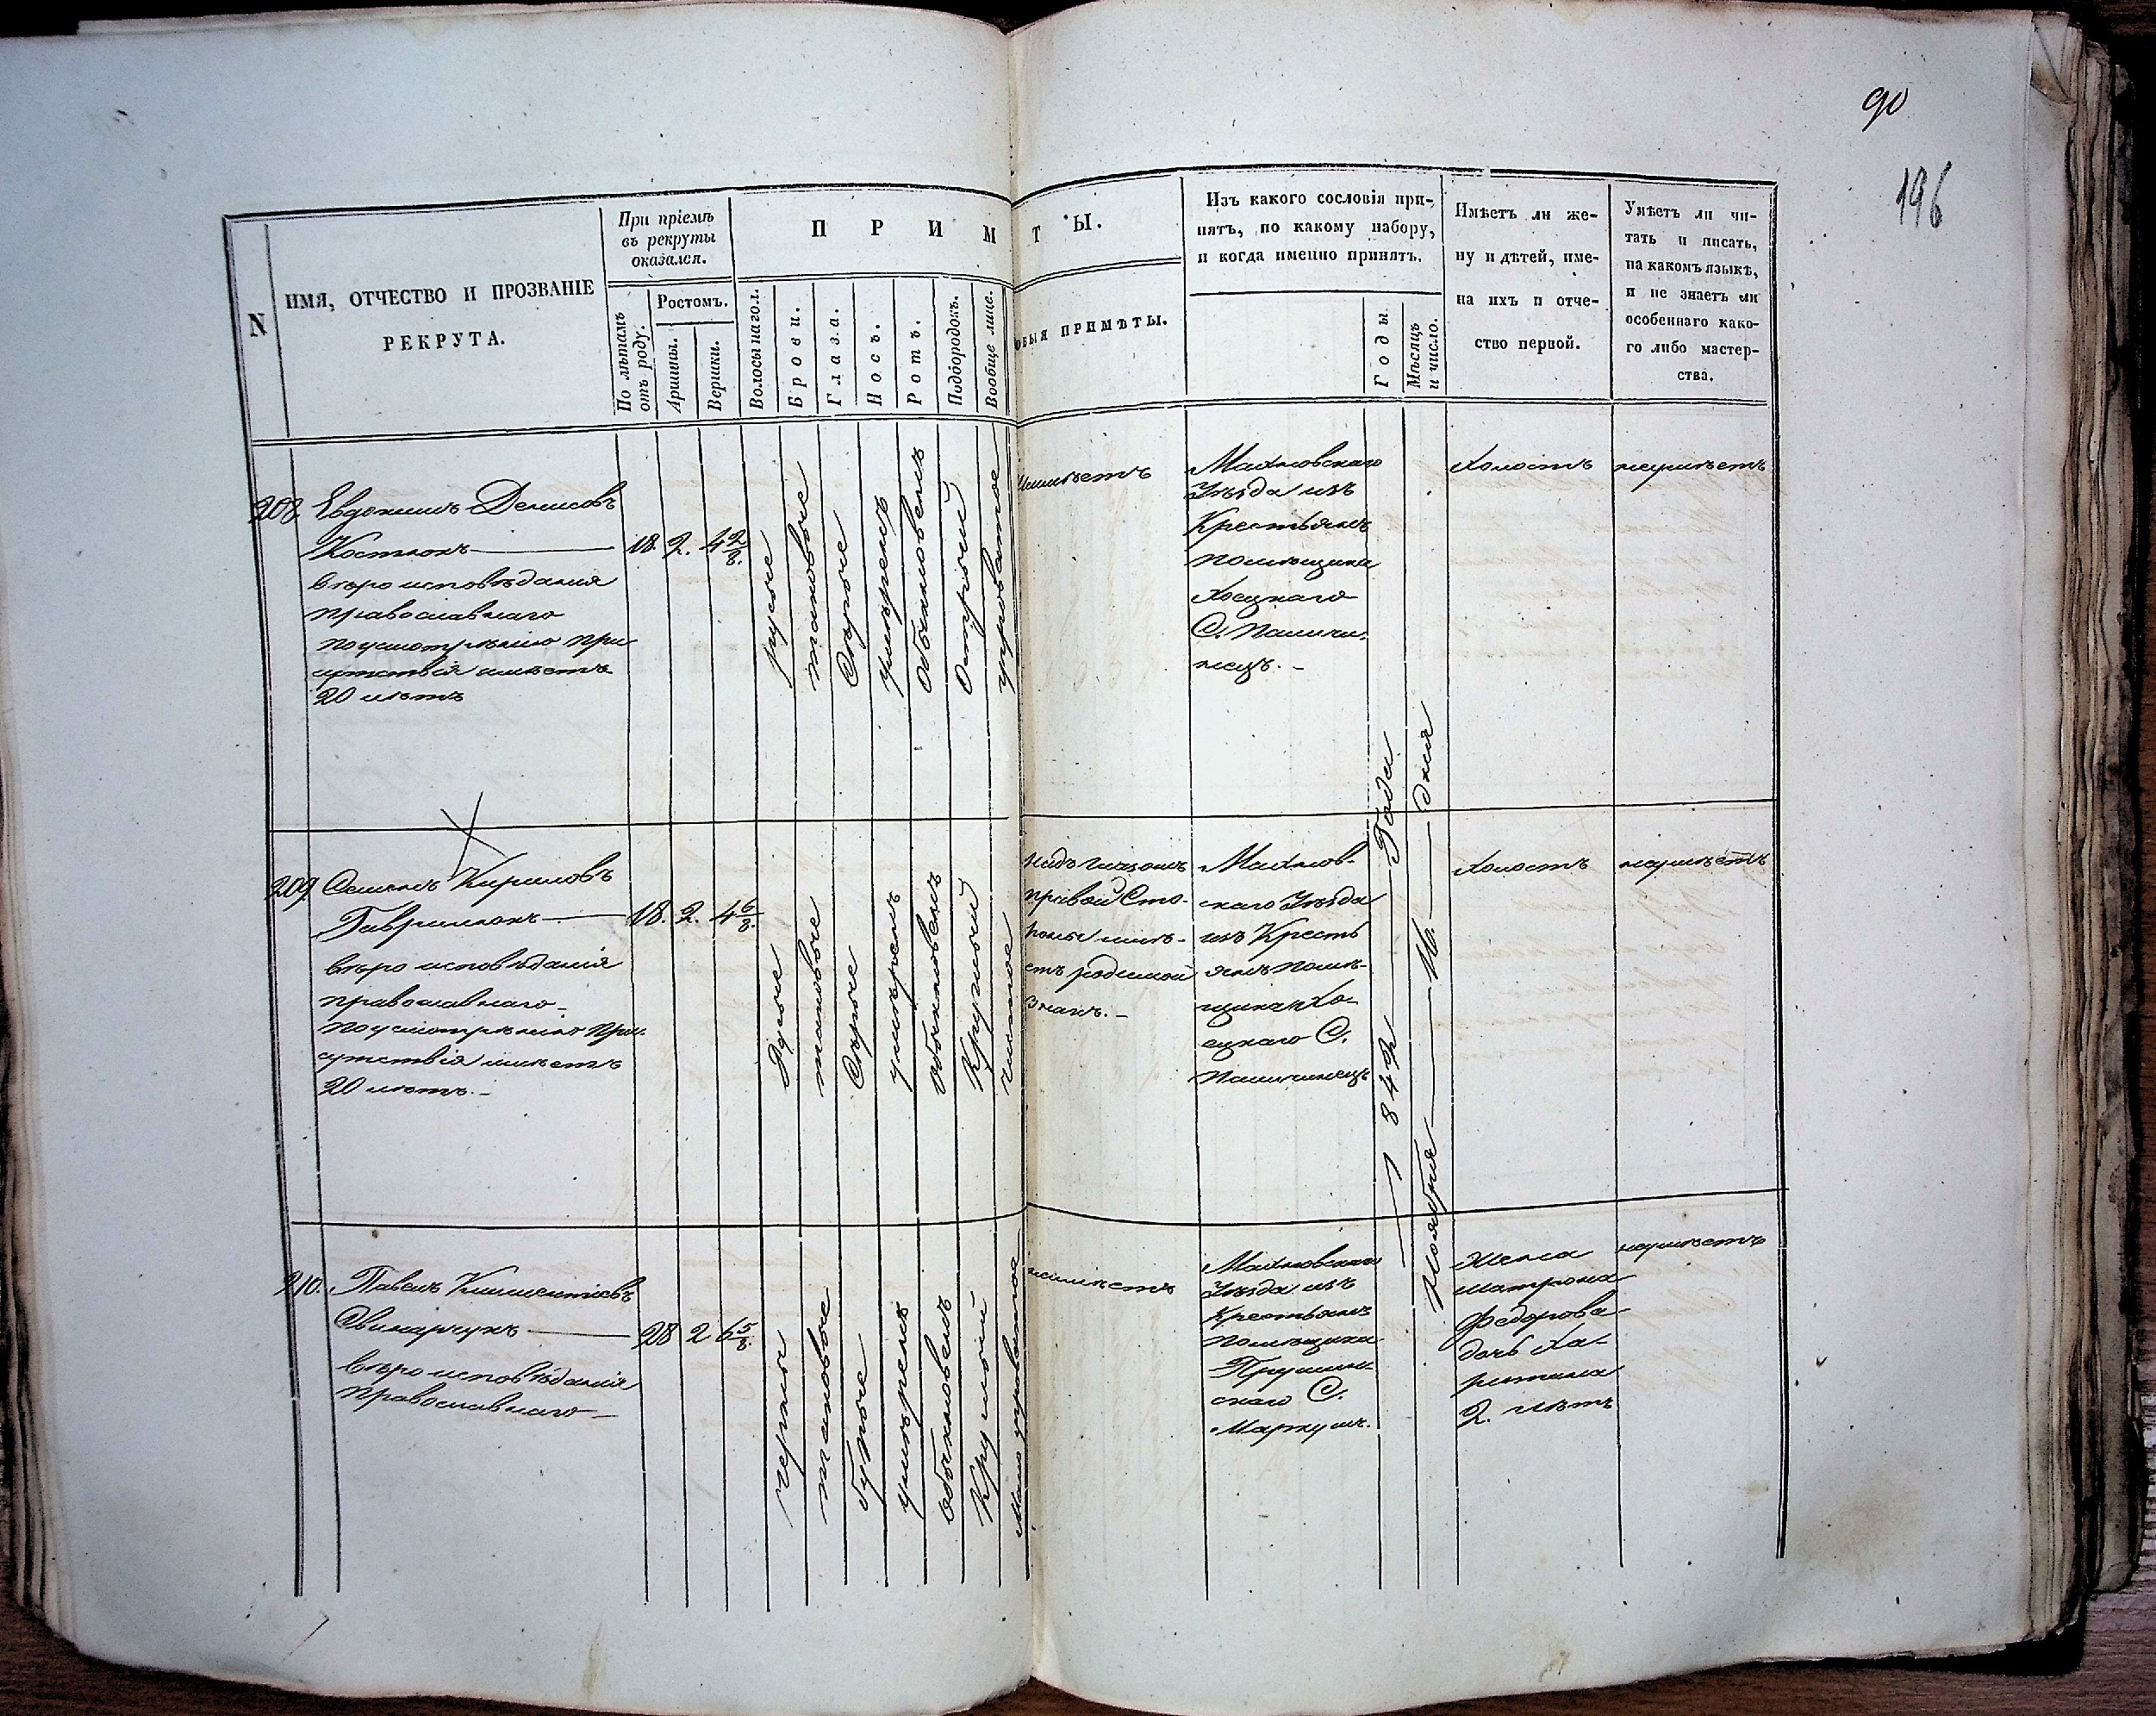 90
196
N
ИМЯ, ОТЧЕСТВО И ПРОЗВАНІЕ
РЕКРУТА.
При пріемѣ
въ рекруты
оказался.
По лѣтамъ
отъ роду.
Ростомъ.
Аршины.
Вершки.
П Р И М Т Ы.
Волосы на гол.
Брови.
Глаза.
Носъ.
Ротъ.
Подбородокъ.
Вообще лице.
обыя ПРИМѢТЫ.
Изъ какого сословія при-
нятъ, по какому набору,
и когда именно принятъ.
Годы.
Мѣсяцъ
и число.
Имѣетъ ли же-
ну и дѣтей, име-
на ихъ и отче-
ство первой.
Умѣетъ ли чи-
тать и писать,
на какомъ языкѣ,
и не знаетъ ли
особеннаго како-
го либо мастер-
ства.
208.
Евдокимъ Денисовъ
Костюкъ
вѣро исповѣданія
православнаго
поусмотрѣнію при
сутствія имѣетъ
20 лѣтъ
18. 2. 4 2/8.
русые
таковые
Сѣрые
умѣренъ
Обыкновенъ
Острый
угреватое
Махновскаго
Уѣзда изъ
Крестьянъ
помѣщика
Хоецкаго
С. Пашчи-
нецъ. -
Холостъ
неумѣетъ
209.
Семенъ Кириловъ
Гаврилюкъ
вѣро исповѣданія
православнаго
поусмотрѣнію при
сутствія имѣетъ
20 лѣтъ. -
18. 2. 4 6/8.
Русые
таковые
Сѣрые
умѣренъ
обыкновенъ
Круглый
чистое
надъ глазомъ
правой Сто-
роны имѣ-
етъ родимой
Знакъ. -
Махнов-
скаго Уѣзда
изъ Кресть
янъ помѣ-
щика Хо-
ецкаго С.
Холостъ
неумѣетъ
1842 Года
Ноября 16. дня
210.
Павелъ Климентіевъ
Свинарчукъ
вѣро исповѣданія
православнаго
28 2 6 5/8.
черные
таковые
бурые
умѣренъ
обыкновенъ
Круглый
мало угреватое
неимѣетъ
Махновскаго
Уѣзда изъ
Крестьянъ
помѣщика
скаго С.
Жена
матрона
Федорова
дочь Ха-
ритина
2. лѣтъ
неумѣетъ